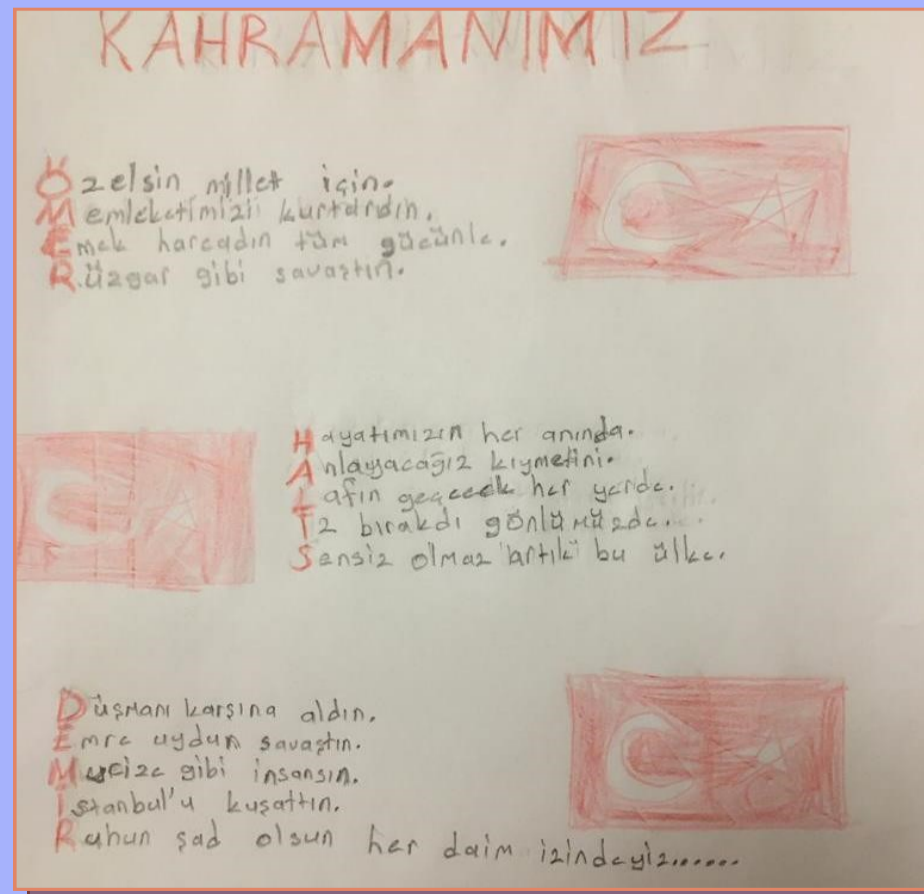 KAHRAMANIMIZ
Özelsin millet için.
Memleketimizi kurtardın.
Emek harcadın tüm gücünle.
Rüzgar gibi savaştın.
Hayatımızın her anında.
Anlayacağız kıymetini.
Lafın geçecek her yerde.
İz bırakdı gönlümüzde.
Sensiz olmaz artık bu ülke.
Düşmanı karşına aldın.
Emre uydun savaştın.
Mucize gibi insansın.
İstanbul'u kuşattın.
Ruhun şad olsun her daim izindeyiz......